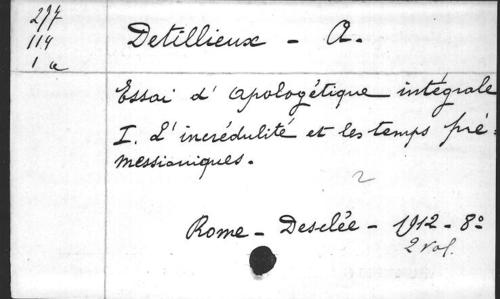 297
114
1 a
Detillieux - A.
Essai d'apologétique intégrale
I. L'incrédulité et les temps pré-
messianiques.
2
Rome - Desclée - 1912 - 8°
2 vol.